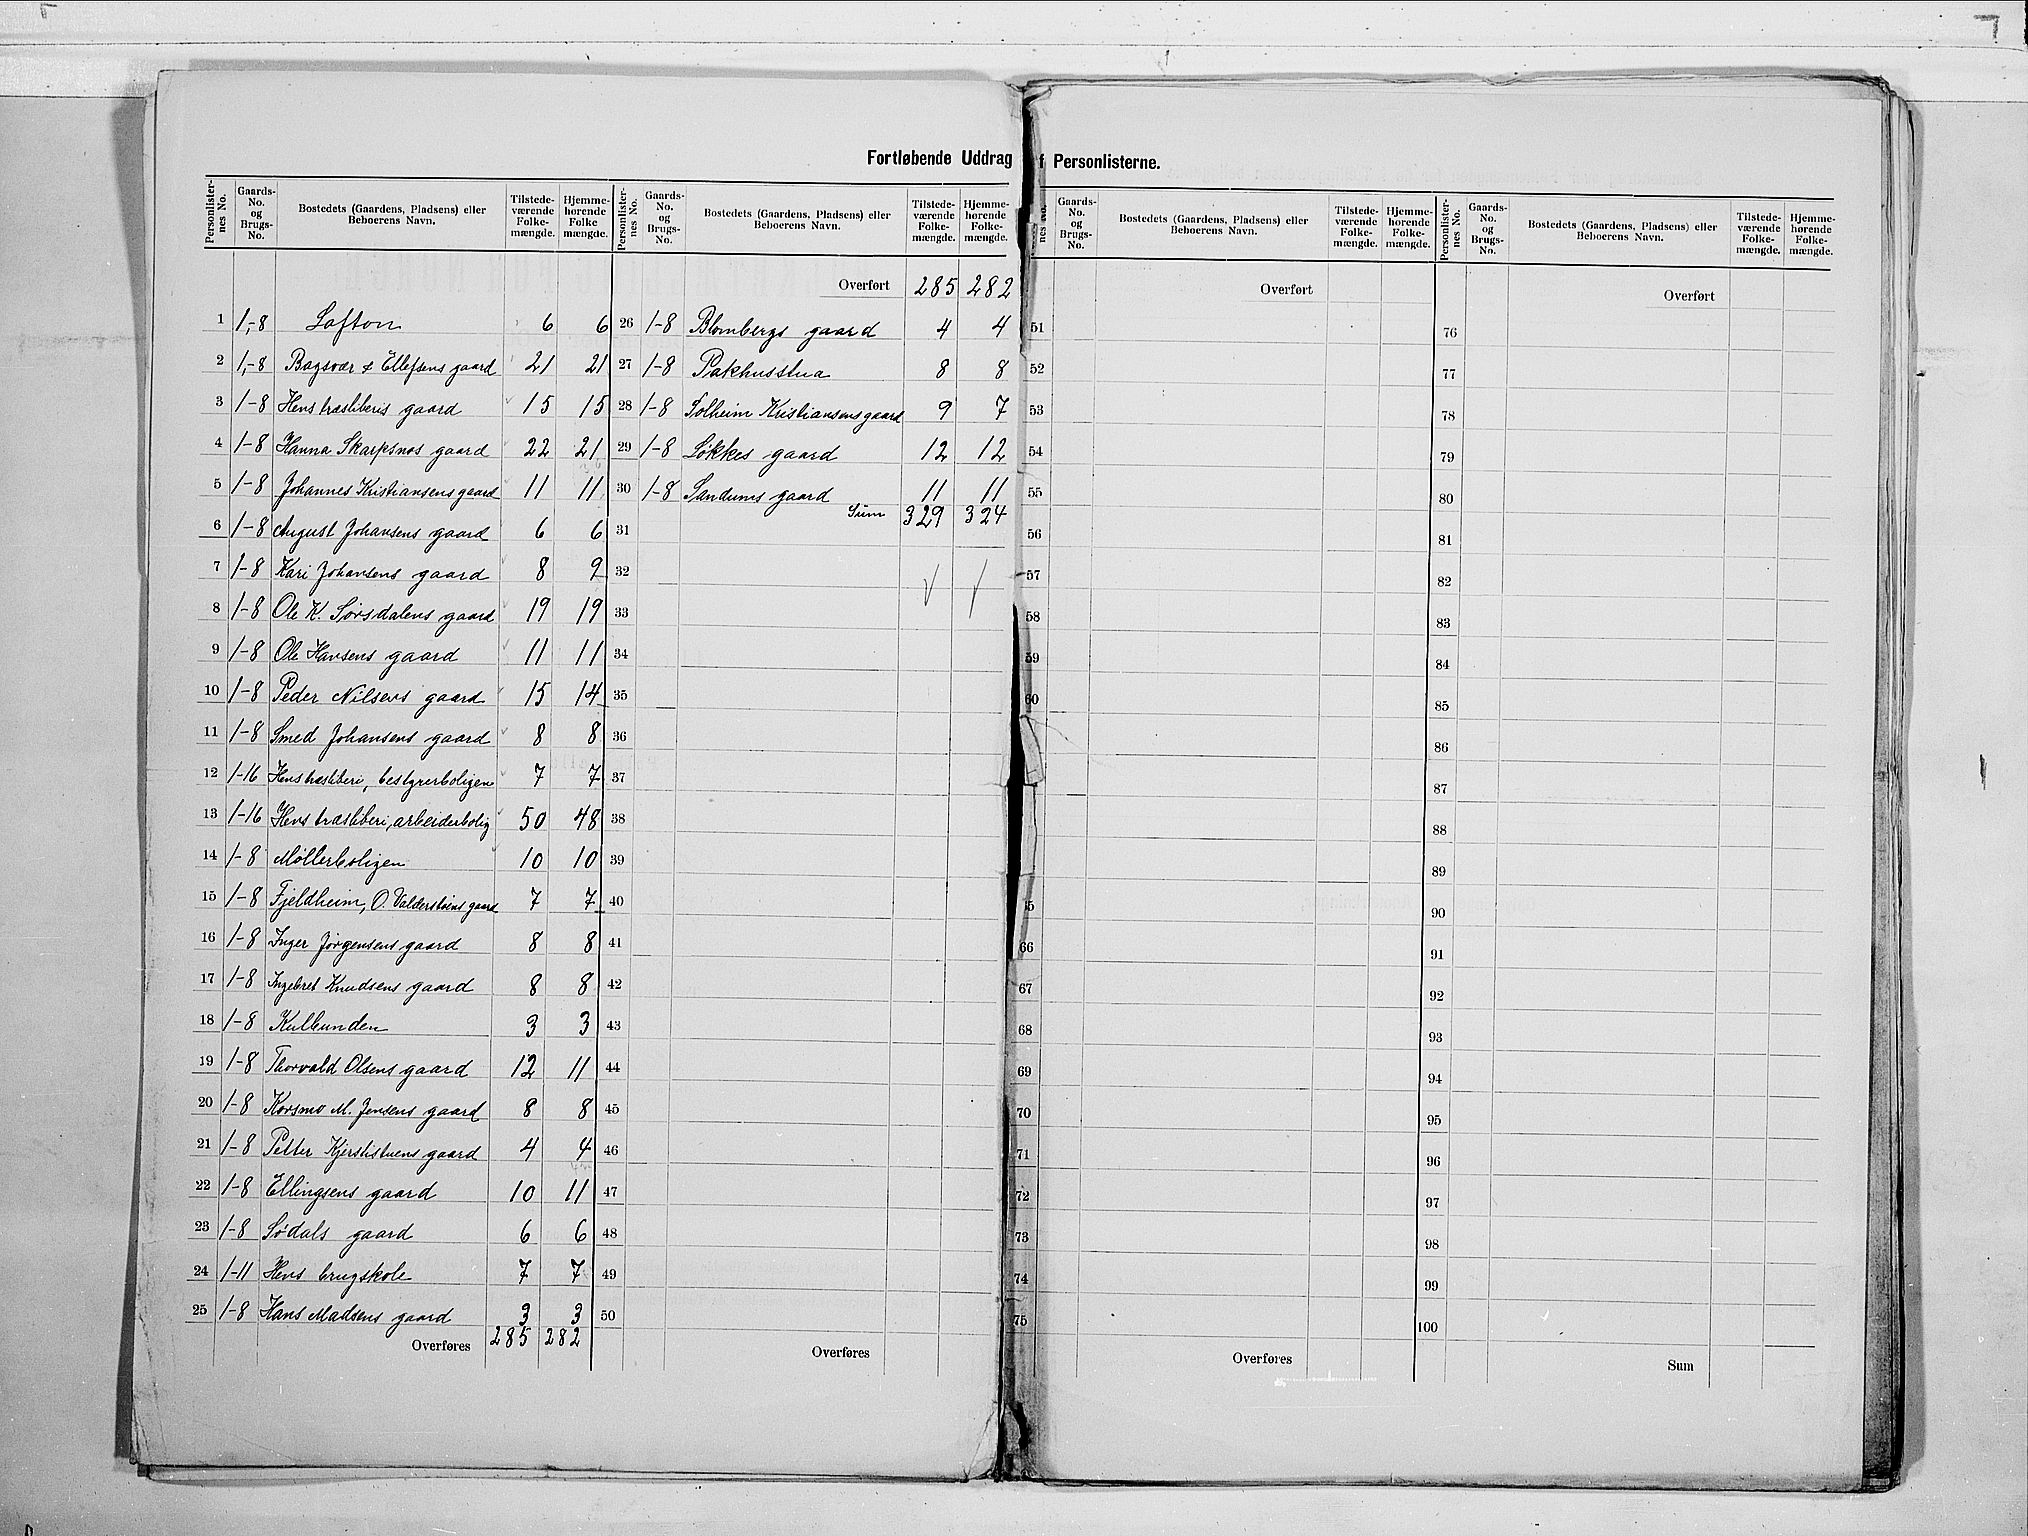 Fortløbende Uddrag f Personlisterne.
Personlister-nes No. Gaards-No. og Brugs-No. Bostedets (Gaardens, Pladsens) eller Beboerens Navn. Tilstede-værende Folke-mængde. Hjemme-hørende Folke mængde.
1 1,-8 Lofton 6 6
2 1,-8 Bagsvær & Ellefsens gaard 21 21
3 1-8 Hens træsliberis gaard 15 15
4 1-8 Hanna Skarpsnos gaard 22 21
5 1-8 Johannes Kristiansens gaard 11 11
6 1-8 August Johansens gaard 6 6
7 1-8 Kari Johansens gaard 8 9
8 1-8 Ole K. Sørsdalens gaard 19 19
9 1-8 Ole Hansens gaard 11 11
10 1-8 Peder Nilsens gaard 15 14
11 1-8 Smed Johansens gaard 8 8
12 1-16 Hens træsliberi, bestyrerboligen 7 7
13 1-16 Hens træsliberi, arbeiderbolig 50 48
14 1-8 Møllerboligen 10 10
15 1-8 Fjeldheim, O. Valdersteins gaard 7 7
16 1-8 Inger Jørgensens gaard 8 8
17 1-8 Ingebret Knudsens gaard 8 8
18 1-8 Kulbunden 3 3
19 1-8 Thorvald Olsens gaard 12 11
20 1-8 Korsmo M. Jensens gaard 8 8
21 1-8 Petter Kjerstistuens gaard 4 4
22 1-8 Ellingsens gaard 10 11
23 1-8 Sødals gaard 6 6
24 1-11 Hens brugskole 7 7
25 1-8 Hans Madsens gaard 3 3
Overføres 285 282
Personlister-nes No. Gaards-No. og Brugs-No. Bostedets (Gaardens, Pladsens) eller Beboerens Navn. Tilstede-værende Folke-mængde. Hjemme-hørende Folke-mængde.
Overført 285 282
26 1-8 Blombergs gaard 4 4
27 1-8 Pakhusstua 8 8
28 1-8 Solheim Kristiansens gaard 9 7
29 1-8 Løkkes gaard 12 12
30 1-8 Sandums gaard 11 11
Sum 329 324
31
32
33
34
35
36
37
38
39
40
41
42
43
44
45
46
47
48
49
50
Overføres
nes No. Gaards-No. og Brugs-No. Bostedets (Gaardens, Pladsens) eller Beboerens Navn. Tilstede-værende Folke-mængde. Hjemme-hørende Folke-mængde.
Overført
51
52
53
54
55
56
57
58
59
60
5
66
67
68
69
70
71
72
73
74
75
Overføres
Personlister-nes No. Gaards-No. og Brugs-No. Bostedets (Gaardens, Pladsens) eller Beboerens Navn. Tilstede-værende Folke-mængde. Hjemme-hørende Folke-mængde.
Overført
76
77
78
79
80
81
82
83
84
85
86
87
88
89
90
91
92
93
94
95
96
97
98
99
100
Sum